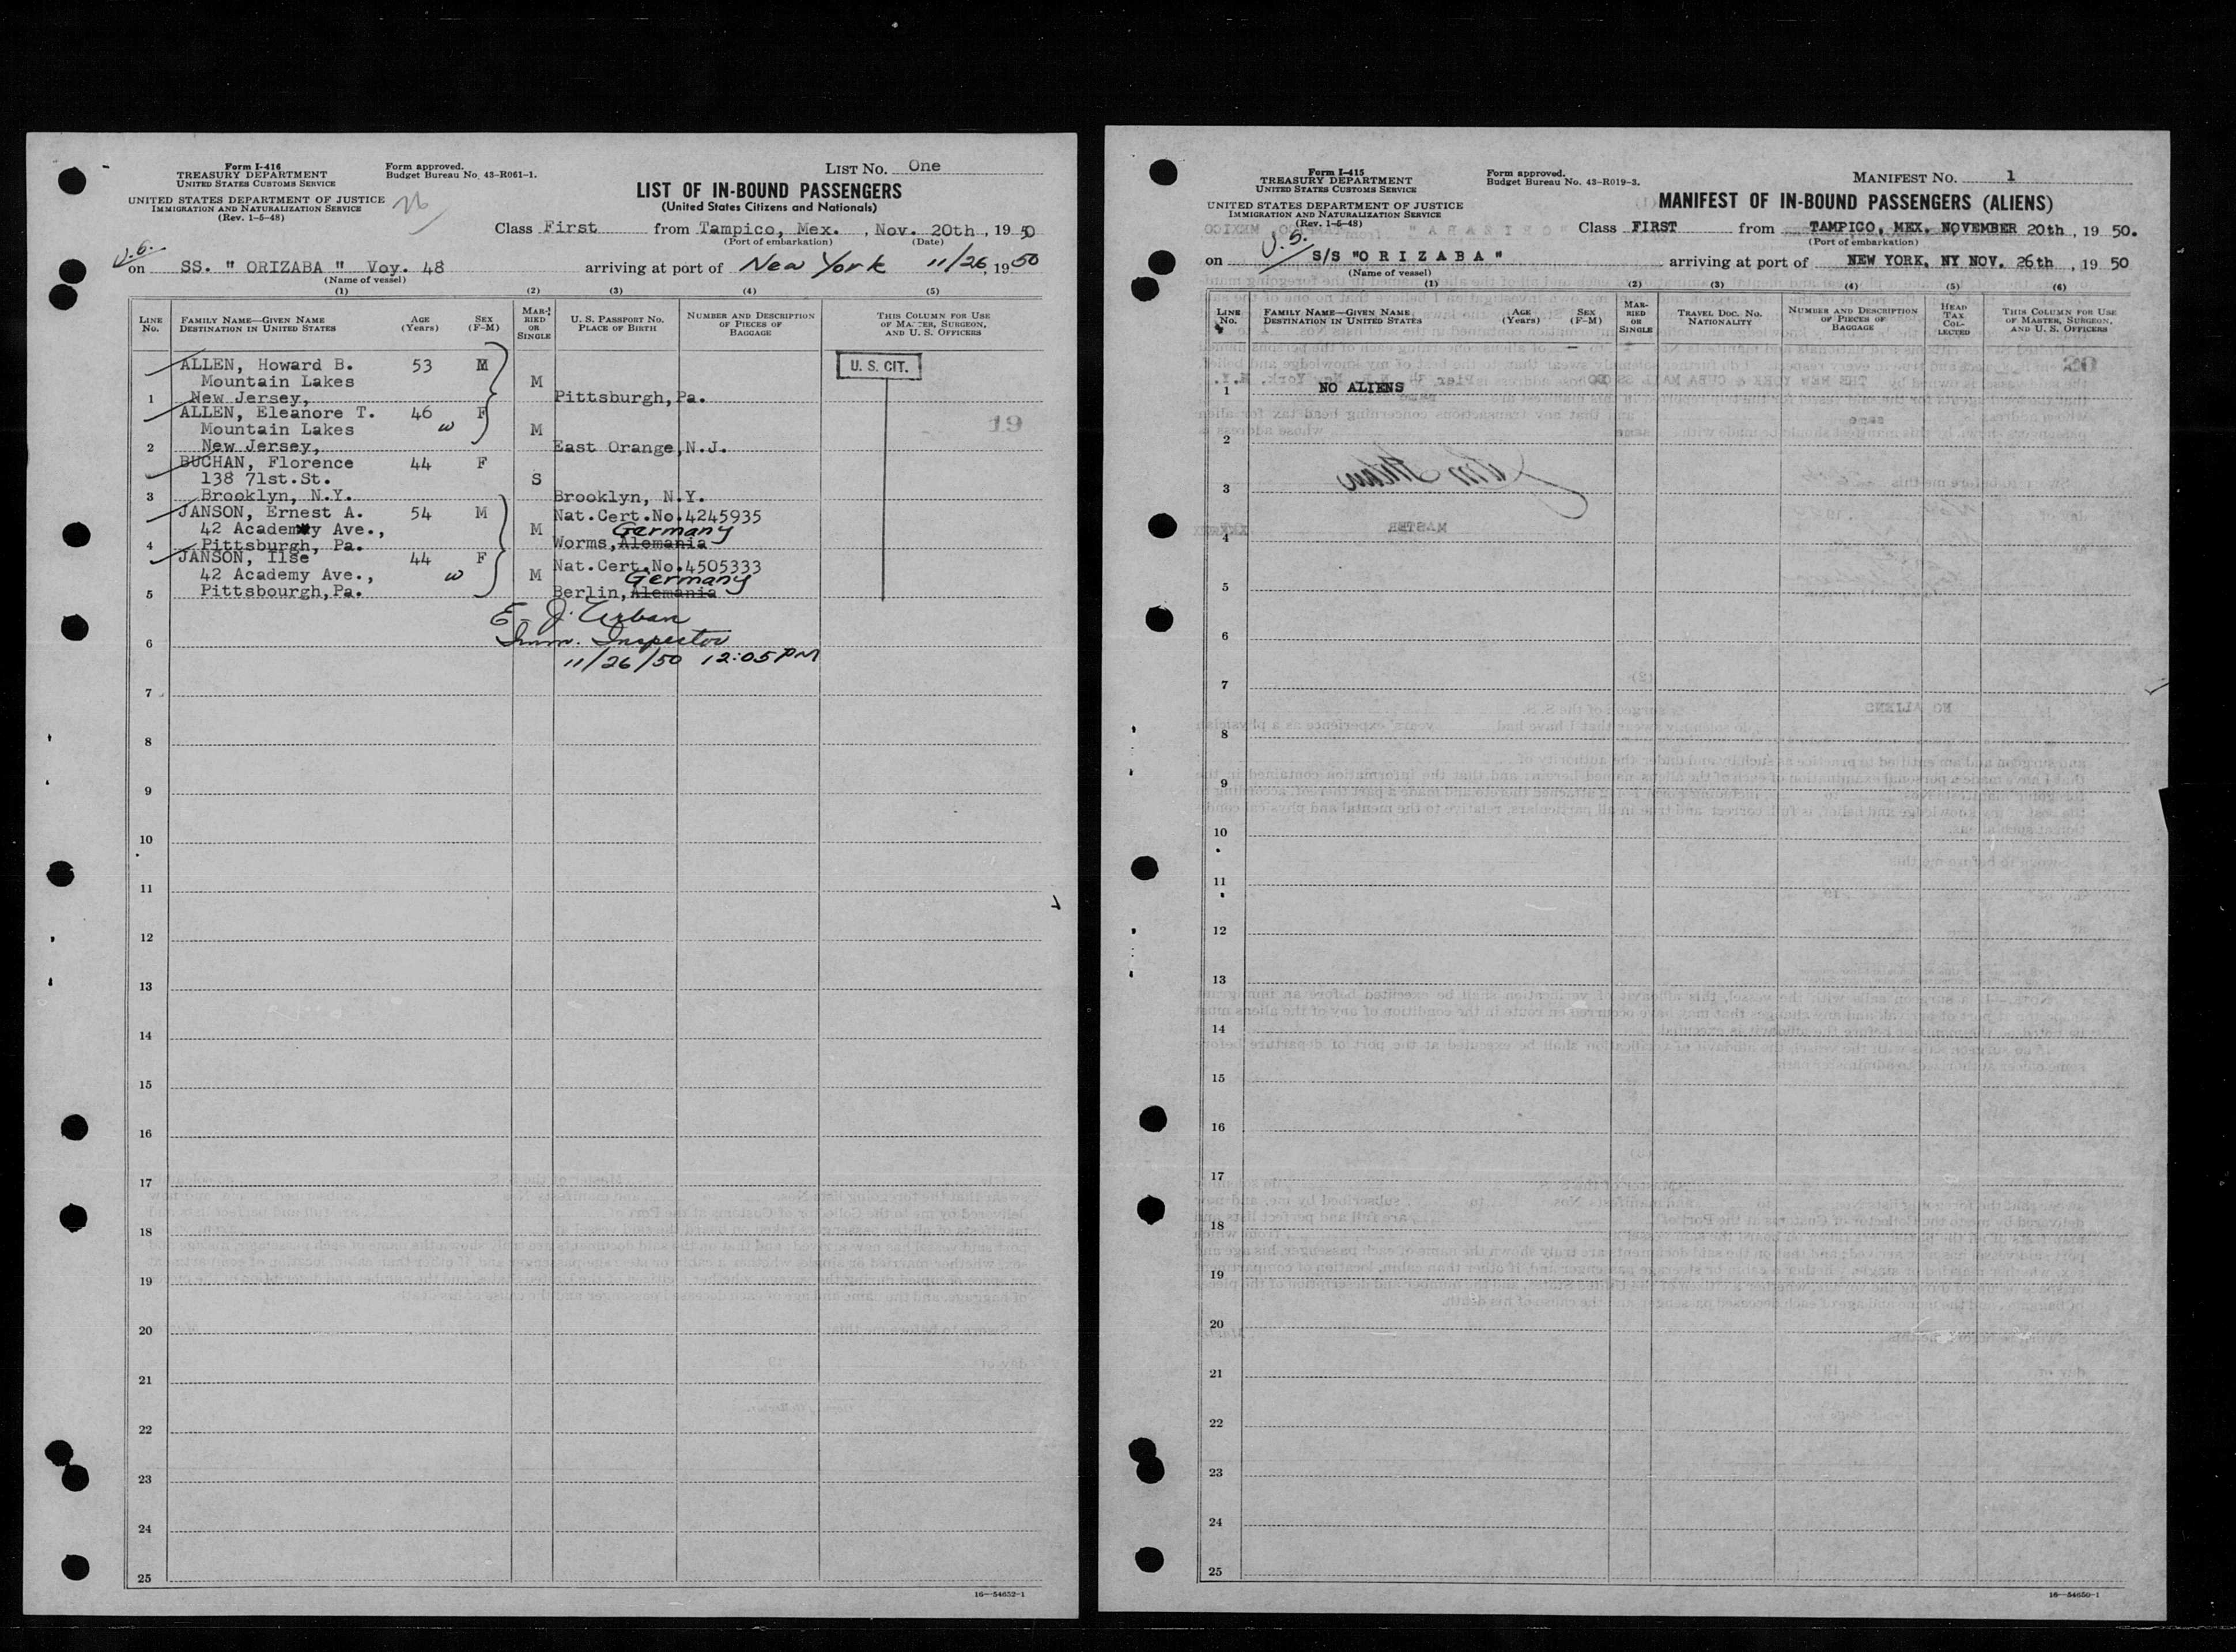 Form I-416
TREASURY DEPARTMENT
UNITED STATES CUSTOMS SERVICE
UNITED STATES DEPARTMENT OF JUSTICE
IMMIGRATION AND NATURALIZATION SERVICE
(Rev. 1-5-48)
Form approved.
Budget Bureau No. 43-R061-1.
LIST No. One
LIST OF IN-BOUND PASSENGERS
(United States Citizens and Nationals)
Class First from Tampico, Mex. , Nov. 20th , 1950
(Port of embarkation) (Date)
on SS. " ORIZABA " Voy. 48 arriving at port of New York 11/26, 1950
(Name of vessel)
(1) (2) (3) (4) (5)
LINE No. FAMILY NAME—GIVEN NAME DESTINATION IN UNITED STATES AGE (Years) SEX (F-M) MARRIED OR SINGLE U. S. PASSPORT No. PLACE OF BIRTH NUMBER AND DESCRIPTION OF PIECES OF BAGGAGE THIS COLUMN FOR USE OF MASTER, SURGEON, AND U. S. OFFICERS
ALLEN, Howard B. 53 M U. S. CIT.
Mountain Lakes M
1 New Jersey, Pittsburgh, Pa.
ALLEN, Eleanore T. 46 F 19
Mountain Lakes w M
2 New Jersey, East Orange, N.J.
BUCHAN, Florence 44 F
138 71st.St. S
3 Brooklyn, N.Y. Brooklyn, N.Y.
JANSON, Ernest A. 54 M Nat.Cert.No.4245935
42 Academy Ave., M Germany
4 Pittsburgh, Pa. Worms, Alemania
JANSON, Ilse 44 F Nat.Cert.No.4505333
42 Academy Ave., w M Germany
5 Pittsbourgh,Pa. Berlin, Alemania
E. J. Urban
6 Imm. Inspector
11/26/50 12:05 PM
7
8
9
10
11
12
13
14
15
16
17
18
19
20
21
22
23
24
25
16—54652-1
Form I-415
TREASURY DEPARTMENT
UNITED STATES CUSTOMS SERVICE
UNITED STATES DEPARTMENT OF JUSTICE
IMMIGRATION AND NATURALIZATION SERVICE
(Rev. 1-5-48)
Form approved.
Budget Bureau No. 43-R019-3.
MANIFEST No. 1
MANIFEST OF IN-BOUND PASSENGERS (ALIENS)
Class FIRST from TAMPICO, MEX. NOVEMBER 20th , 19 50.
(Port of embarkation)
U.S.
on S/S "O R I Z A B A" arriving at port of NEW YORK, NY NOV. 26th , 19 50
(Name of vessel)
(1) (2) (3) (4) (5) (6)
LINE No. FAMILY NAME—GIVEN NAME DESTINATION IN UNITED STATES AGE (Years) SEX (F-M) MARRIED OR SINGLE TRAVEL DOC. No. NATIONALITY NUMBER AND DESCRIPTION OF PIECES OF BAGGAGE HEAD TAX COLLECTED THIS COLUMN FOR USE OF MASTER, SURGEON, AND U. S. OFFICERS
1 NO ALIENS
2
3
4
5
6
7
8
9
10
11
12
13
14
15
16
17
18
19
20
21
22
23
24
25
16—54650-1